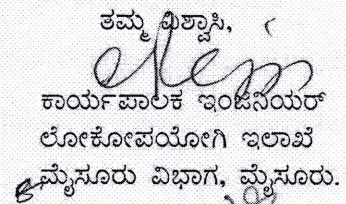 ತಮ್ಮ ವಿಶ್ವಾಸಿ,
ಕಾರ್ಯಪಾಲಕ ಇಂಜಿನಿಯರ್
ಲೋಕೋಪಯೋಗಿ ಇಲಾಖೆ
ಮೈಸೂರು ವಿಭಾಗ, ಮೈಸೂರು.